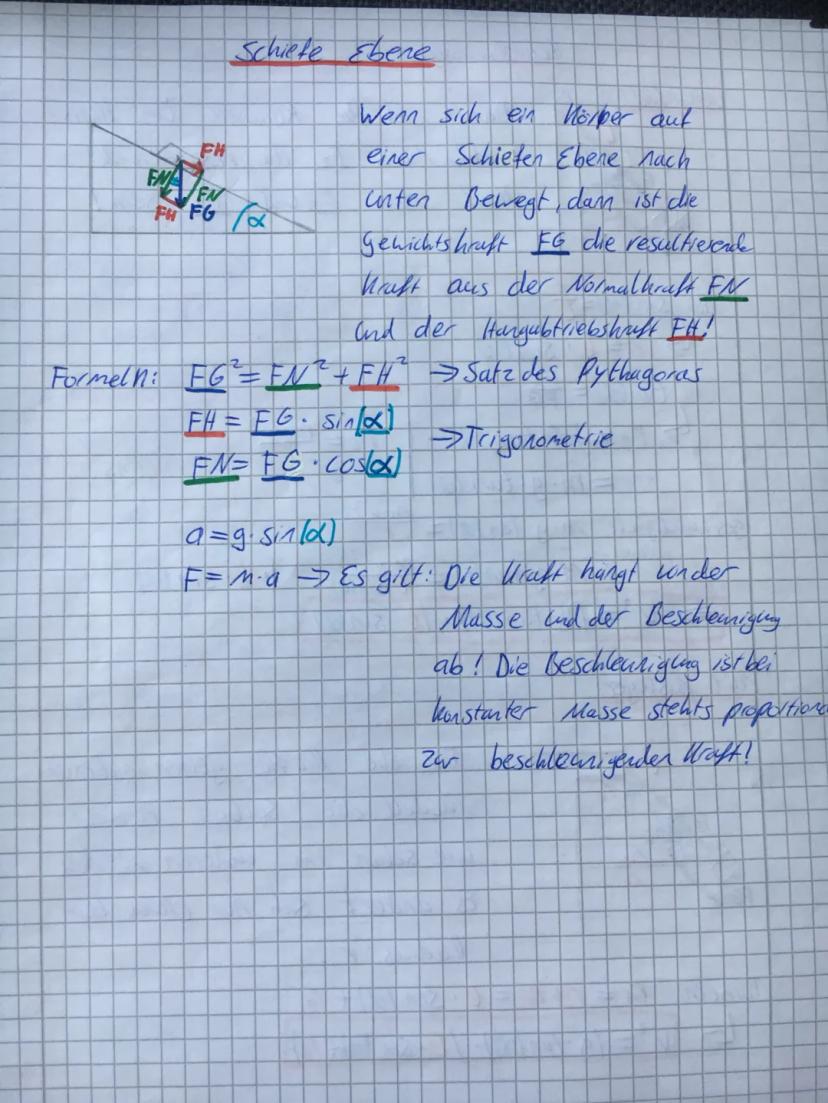 Schiefe Ebene
FH
FN
FN
FH
FG
α
Wenn sich ein Körper auf
einer Schiefen Ebene nach
unten Bewegt, dann ist die
Gewichtskraft FG die resultierende
Kraft aus der Normalkraft FN
und der Hangabtriebskraft FH!
Formeln: FG² = FN² + FH² → Satz des Pythagoras
FH = FG · sin(α)
→ Trigonometrie
FN = FG · cos(α)
a = g · sin(α)
F = m · a → Es gilt: Die Kraft hängt von der
Masse und der Beschleunigung
ab! Die Beschleunigung ist bei
konstanter Masse stehts proportiona
zur beschleunigenden Kraft!